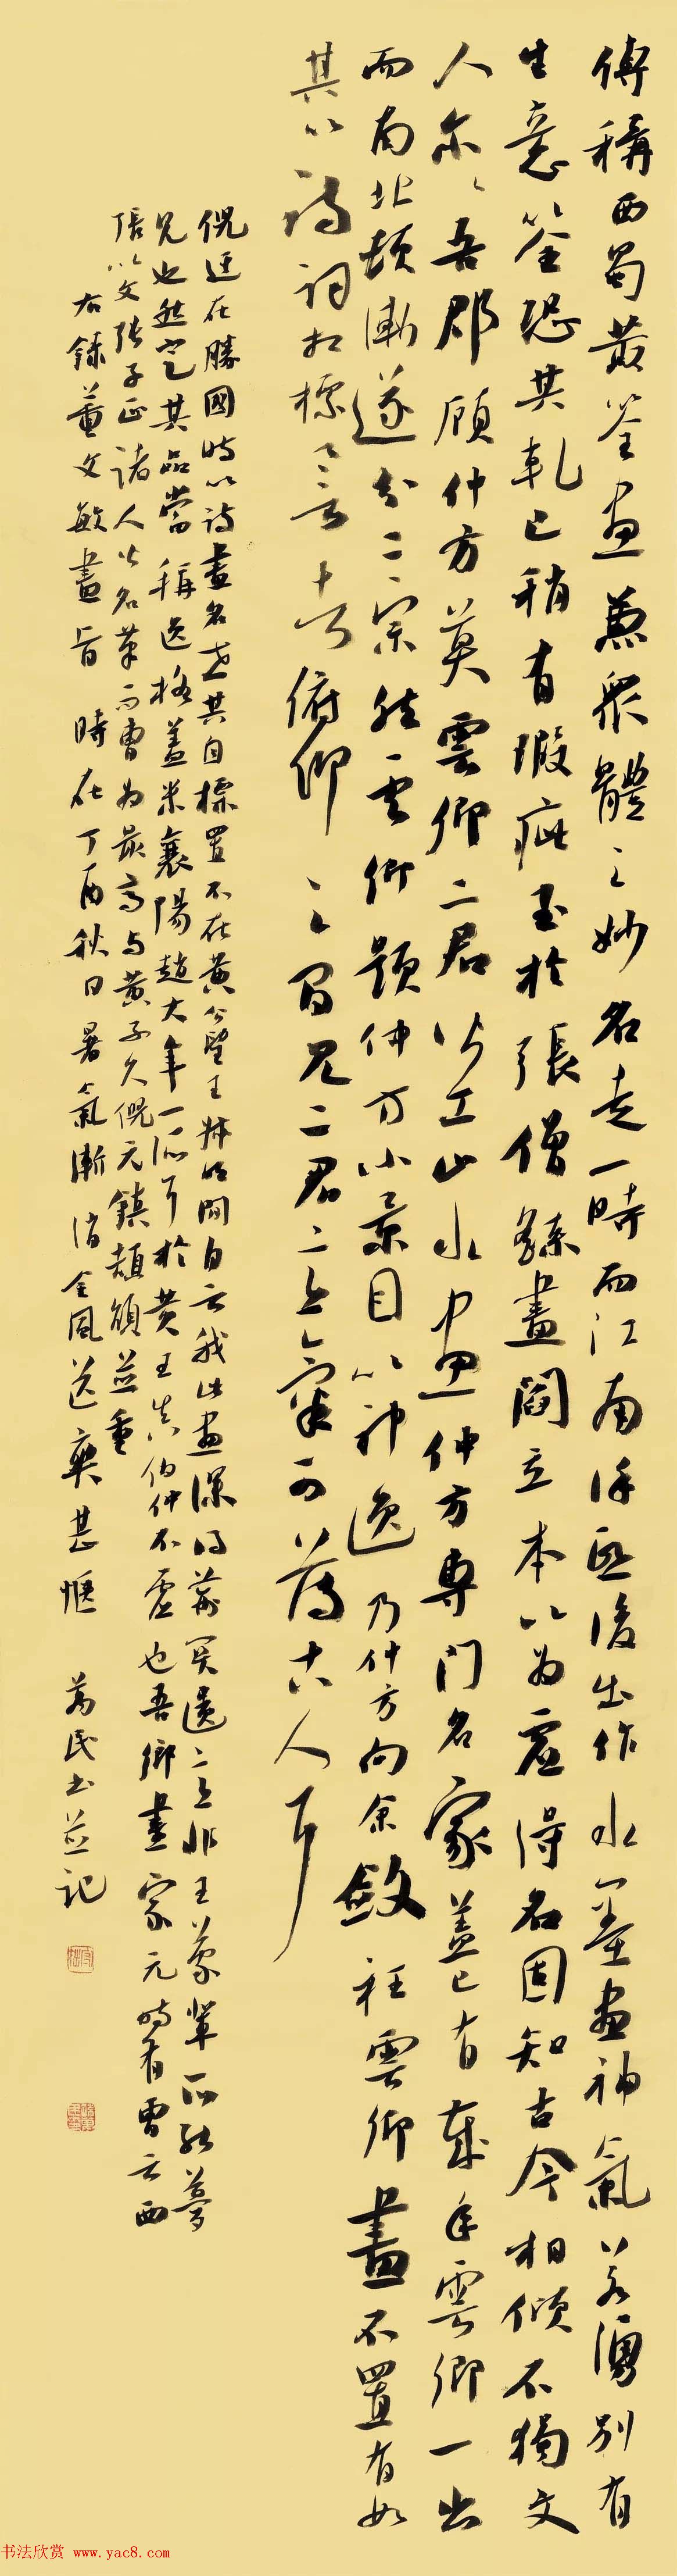 傳稱西蜀黃筌畫兼衆體之妙名走一時而江南徐熙後出作水墨畫神氣若湧別有
生意筌恐其軋己稍有瑕疵至於張僧繇畫閻立本以為虛得名固知古今相傾不獨文
人尔尔吾郡顧仲方莫雲卿二君皆工山水畫仲方專門名家蓋已有歲年雲卿一出
而南北頓漸遂分二宗然雲卿題仲方小景目以神逸乃仲方向余斂衽雲卿畫不置有如
其以詩詞相標譽者俯仰之間見二君之意氣可薄古人耳
倪迂在勝國時以詩畫名世其自標置不在黃公望王叔明間自云我此畫深得荊関遺意非王蒙輩所能夢
見也然定其品當稱逸格蓋米襄陽趙大年一派耳於黃王真伯仲不虛也吾鄉畫家元時有曹云西
張以文張子正諸人皆名筆而曹為最高与黃子久倪元鎮頡頏並重
右錄董文敏畫旨 時在丁酉秋日暑氣漸消金風送爽甚愜 萬民書並記
书法欣赏 www.yac8.com